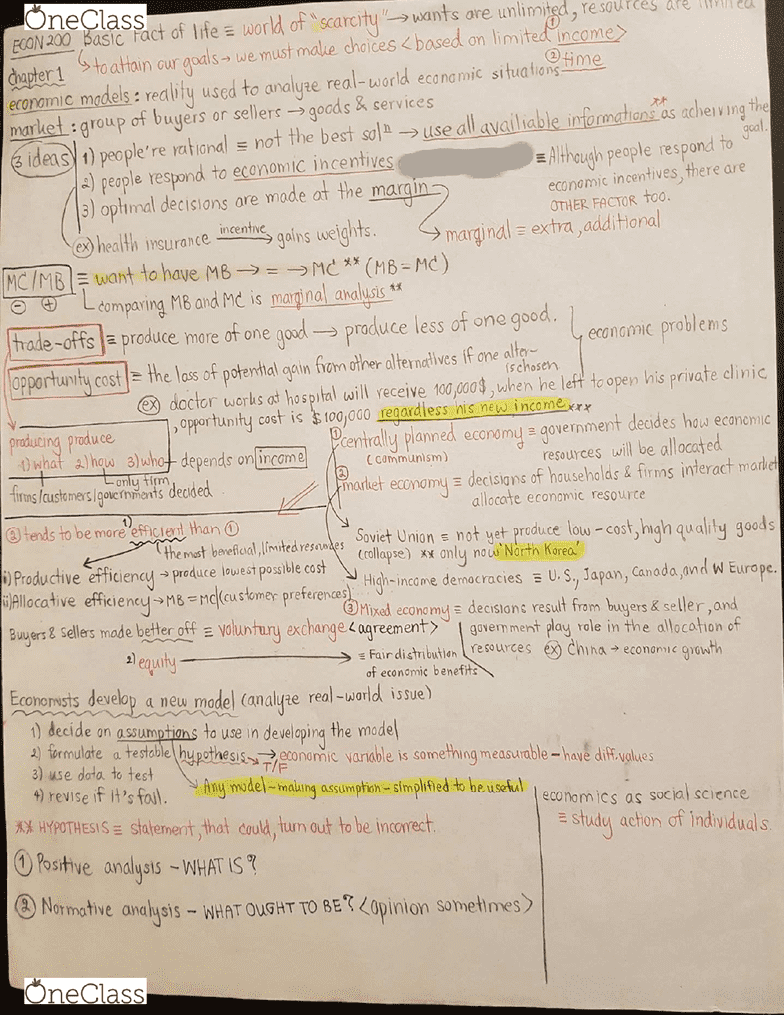 OneClass
ECON200 Basic Fact of life ≡ world of "scarcity" → wants are unlimited, resources are limited
↳ to attain our goals → we must make choices <based on limited ① income>
② time
Chapter 1
economic models : reality used to analyze real-world economic situations
market : group of buyers or sellers → goods & services
3 ideas
1) people're rational ≡ not the best solⁿ → use all availiable informations** as acheiving the goal.
2) people respond to economic incentives
≡ Although people respond to economic incentives, there are OTHER FACTOR too.
3) optimal decisions are made at the margin
↳ marginal ≡ extra, additional
ex) health insurance incentive → gains weights.
MC/MB ≡ want to have MB → = → MC ** (MB = MC)
⊖ ⊕ ↳ comparing MB and MC is marginal analysis **
trade-offs ≡ produce more of one good → produce less of one good.
economic problems
opportunity cost ≡ the loss of potential gain from other alternatives if one alter-
is chosen
ex) doctor works at hospital will receive 100,000$, when he left to open his private clinic
, opportunity cost is $100,000 regardless his new income ***
producing produce
1) what 2) how 3) who → depends on income
only firm
firms/customers/governments decided
① centrally planned economy ≡ government decides how economic
(communism) resources will be allocated
② market economy ≡ decisions of households & firms interact market
allocate economic resource
② tends to be more 1) efficient than ①
(the most beneficial, limited resources
Soviet Union ≡ not yet produce low-cost, high quality goods
(collapse) ** only now 'North Korea'
i) Productive efficiency → produce lowest possible cost
High-income democracies ≡ U.S., Japan, Canada, and W Europe.
ii) Allocative efficiency → MB = MC (customer preferences)
③ Mixed economy ≡ decisions result from buyers & seller, and
government play role in the allocation of
resources ex) China → economic growth
Buyers & sellers made better off ≡ voluntary exchange <agreement>
2) equity → ≡ Fair distribution
of economic benefits
Economists develop a new model (analyze real-world issue)
1) decide on assumptions to use in developing the model
2) formulate a testable hypothesis → economic variable is something measurable - have diff. values
T/F
3) use data to test
Any model - making assumption - simplified to be useful
4) revise if it's fail.
** HYPOTHESIS ≡ statement, that could, turn out to be incorrect.
economics as social science
≡ study action of individuals
① Positive analysis - WHAT IS?
② Normative analysis - WHAT OUGHT TO BE? <opinion sometimes>
OneClass